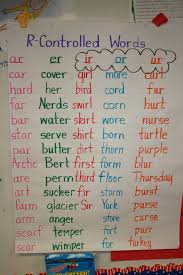 R-Controlled Words
ar er ir or ur
car cover girl more curl
hard her bird cord fur
far Nerds swirl corn hurt
bar water skirt wore nurse
star serve shirt born turtle
par butter dirt thorn purple
Arctic Bert first form blur
are perm third floor Thursday
art sucker fir storm burst
farm glacier Sir York purse
arm anger store curse
scar temper sport nurse
scar wimper for turkey